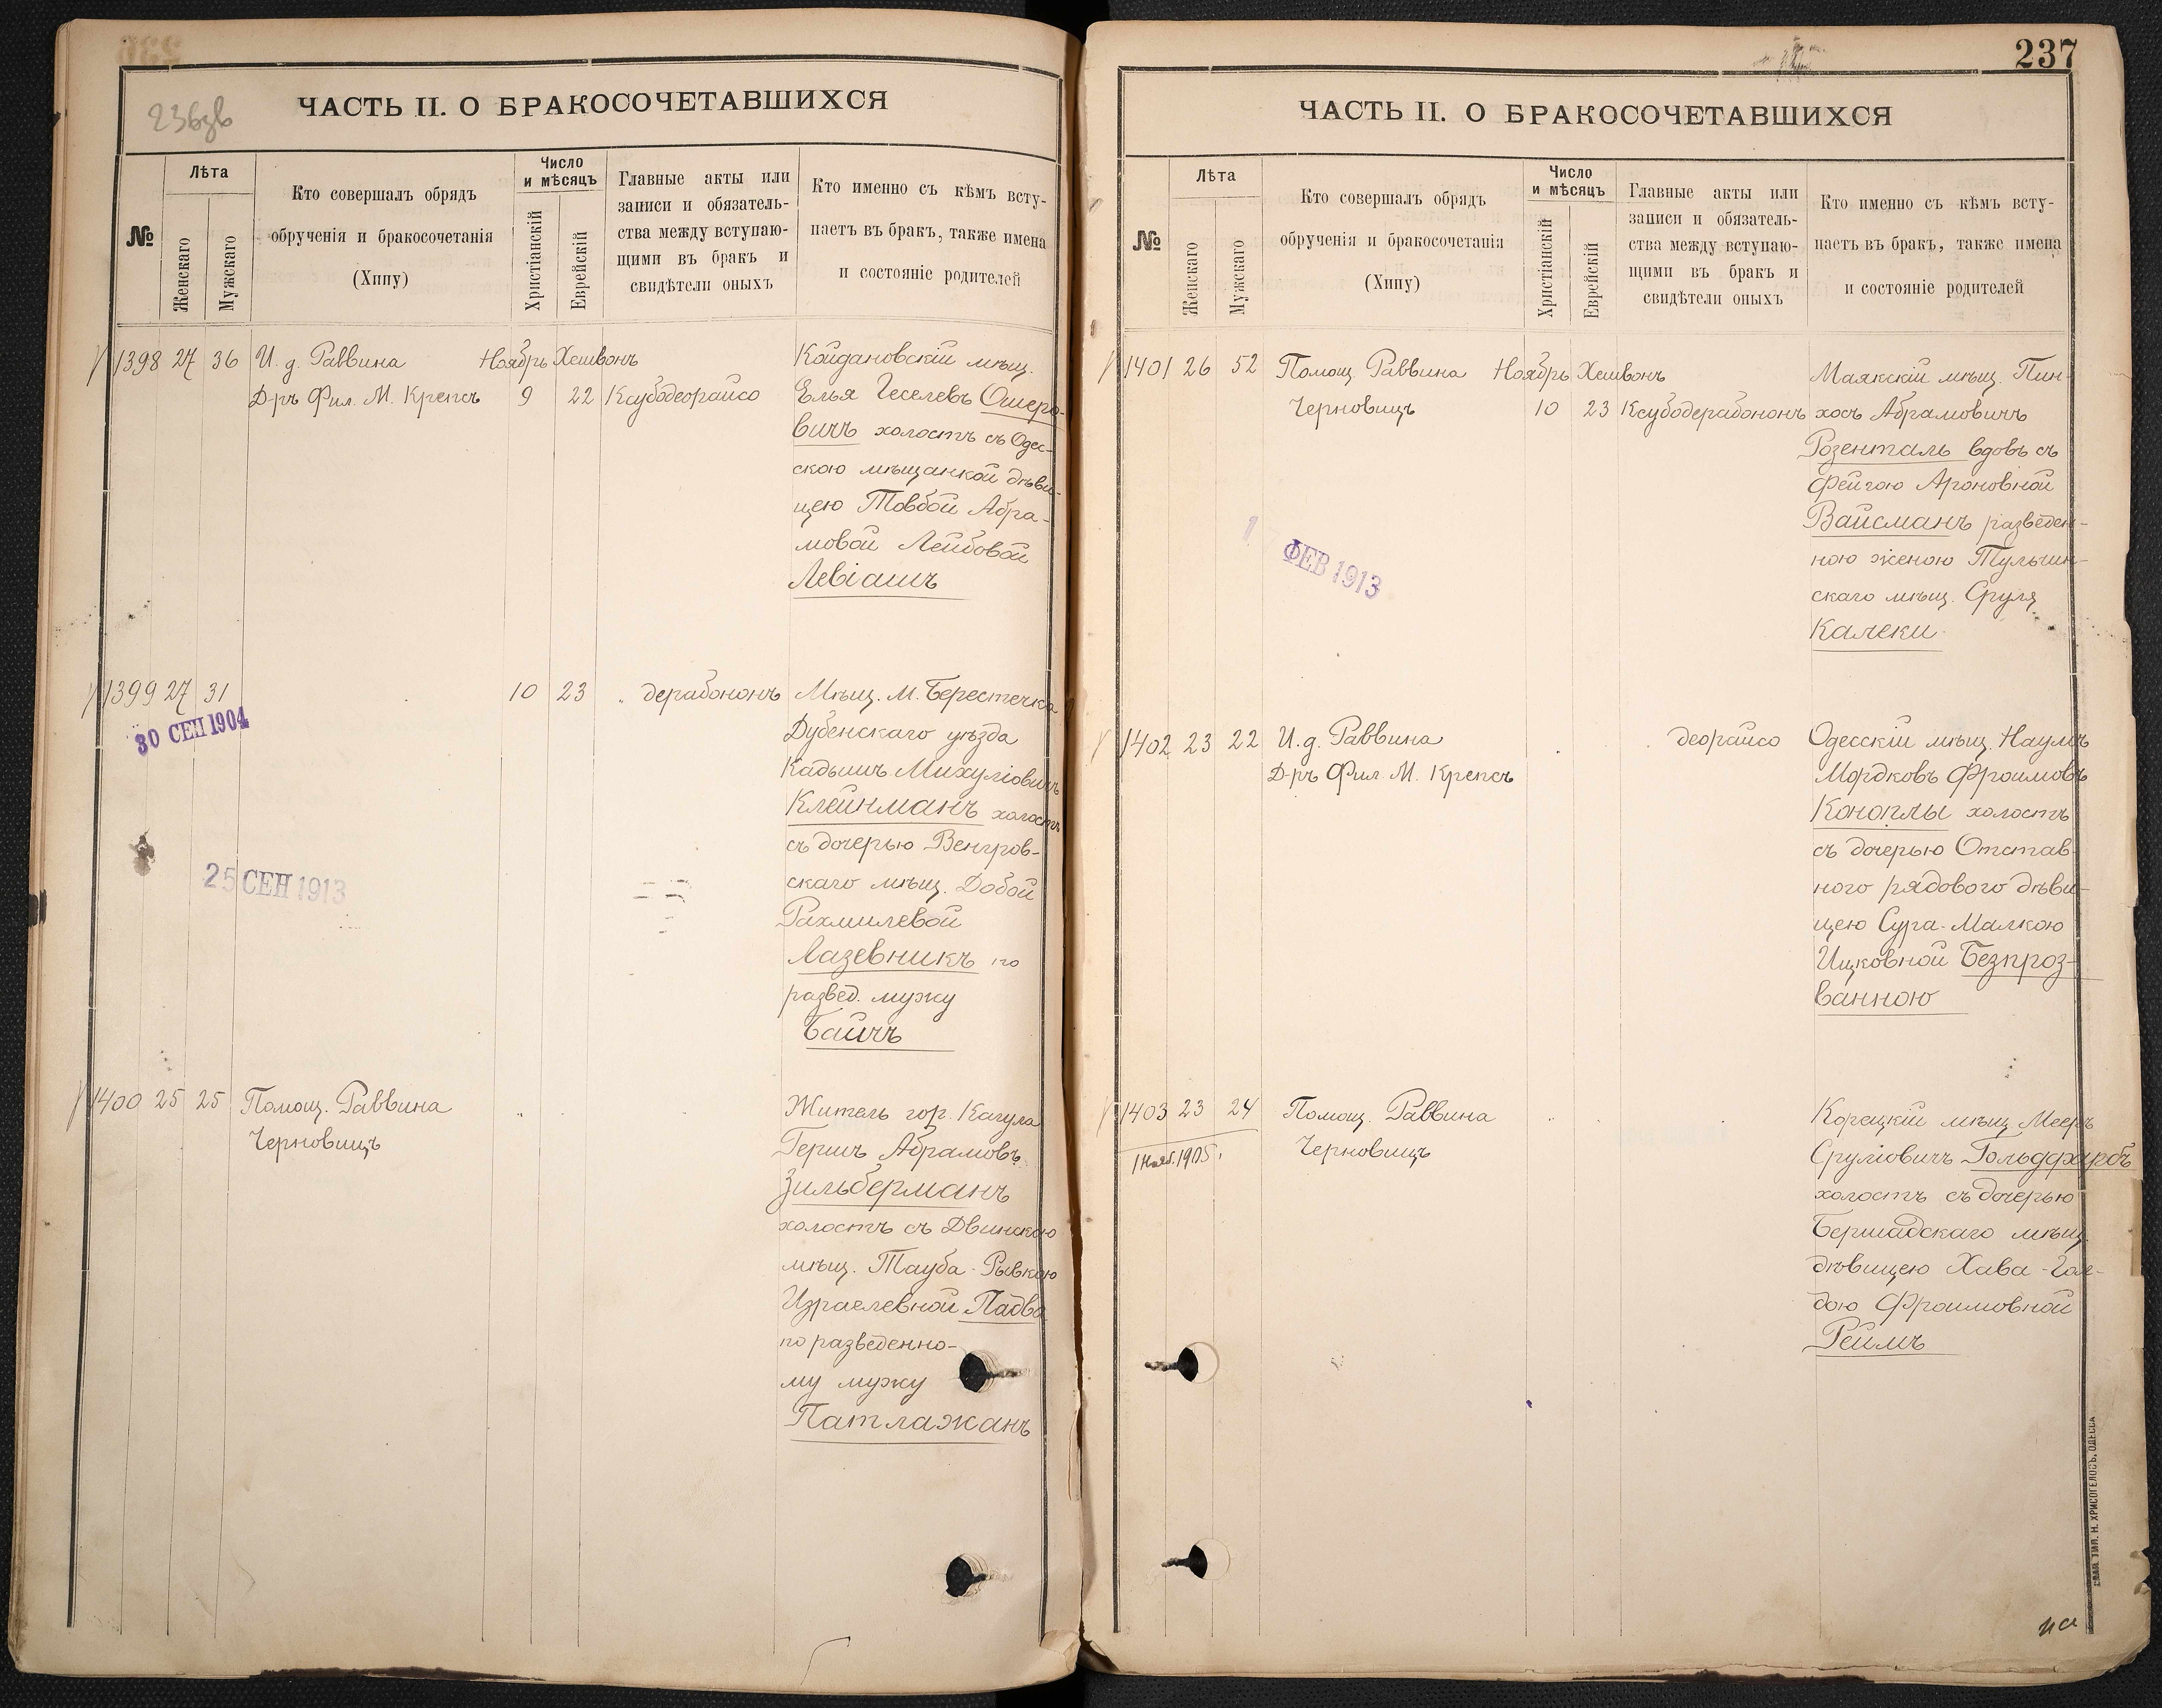 236зв
ЧАСТЬ II. О БРАКОСОЧЕТАВШИХСЯ
№
Лѣта
Женскаго
Мужскаго
Кто совершалъ обрядъ
обрученія и бракосочетанія
(Хипу)
Число
и мѣсяцъ
Христіанскій
Еврейскій
Главные акты или
записи и обязатель-
ства между вступаю-
щими въ бракъ и
свидѣтели оныхъ
Кто именно съ кѣмъ всту-
паетъ въ бракъ, также имена
и состояніе родителей
1398 27 36 И. д. Раввина Ноябрь Хешвонъ Койдановскій мѣщ.
Д-ръ Фил. М. Крепсъ 9 22 Ксубодеорайсо Елья Геселевъ Ошеро-
вичъ холостъ съ Одес-
скою мѣщанкой дѣви-
цею Товбой Абра-
мовой Лейбовой
Левіашъ
1399 27 31 10 23 „ дерабононъ Мѣщ. М. Берестечка
30 СЕН 1904
Дубенскаго уѣзда
Кадышъ Михуліовичъ
Клейнманъ холостъ
съ дочерью Венгров-
25 СЕН 1913
скаго мѣщ. Добой
Рахмилевой
Лазевникъ по
развед. мужу
Байчъ
1400 25 25 Помощ. Раввина „ Житель гор. Кагула
Черновицъ Гершъ Абрамовъ
Зильберманъ
холостъ съ Двинскою
мѣщ. Тауба-Рывкою
Израелевной Падва
по разведенно-
му мужу
Патлажанъ
237
ЧАСТЬ II. О БРАКОСОЧЕТАВШИХСЯ
№
Лѣта
Женскаго
Мужскаго
Кто совершалъ обрядъ
обрученія и бракосочетанія
(Хипу)
Число
и мѣсяцъ
Христіанскій
Еврейскій
Главные акты или
записи и обязатель-
ства между вступаю-
щими въ бракъ и
свидѣтели оныхъ
Кто именно съ кѣмъ всту-
паетъ въ бракъ, также имена
и состояніе родителей
1401 26 52 Помощ. Раввина Ноябрь Хешвонъ Маякскій мѣщ. Пин-
Черновицъ 10 23 Ксубодерабононъ хосъ Абрамовичъ
Розенталь вдовъ съ
Фейгою Ароновной
Вайсманъ разведен-
ФЕВ 1913
ною женою Тульчин-
скаго мѣщ. Сруля
Калеки
1402 23 22 И. д. Раввина деорайсо Одесскій мѣщ. Наумъ
Д-ръ Фил. М. Крепсъ Мордковъ Фроимовъ
Коноплы холостъ
съ дочерью Отстав-
ного рядового дѣви-
цею Сура-Малкою
Ицковной Безпроз-
ванною
1403 23 24 Помощ. Раввина Корецкій мѣщ. Мееръ
1 Нояб. 1905 г. Черновицъ Сруліовичъ Гольдфарбъ
холостъ съ дочерью
Бершадскаго мѣщ.
дѣвицею Хава-Гол-
дою Фроимовной
Реймъ
СЛАВ. ТИП. Н. ХРИСОГЕЛОСЪ, ОДЕССА